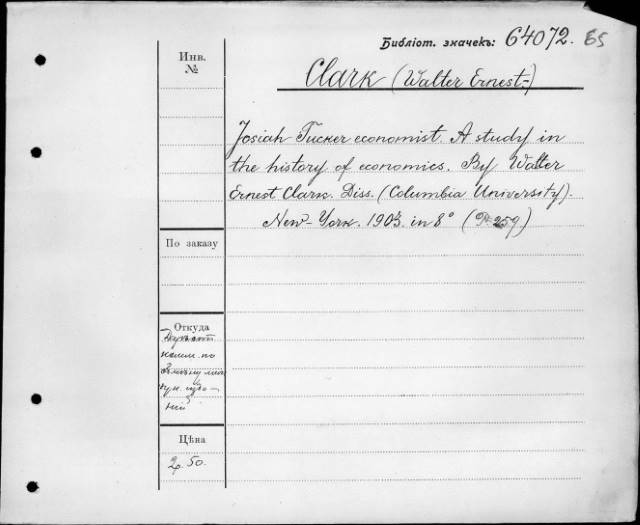 Библіот. значекъ: 64072. 85
Инв.
№
Clark (Walter Ernest-)
Josiah Tucker economist. A study in
the history of economics. By Walter
Ernest Clark. Diss. (Columbia University).
New-York. 1903. in 8° (P. 259)
По заказу
Откуда
комм. по
ній
Цѣна
2 50.